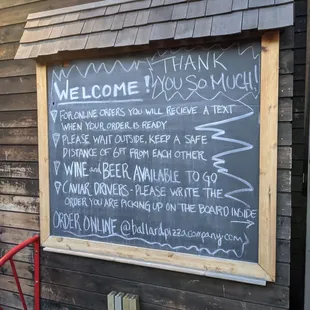 WELCOME!
THANK
YOU SO MUCH!
FOR ONLINE ORDERS YOU WILL RECIEVE A TEXT
WHEN YOUR ORDER IS READY
PLEASE WAIT OUTSIDE, KEEP A SAFE
DISTANCE OF 6FT FROM EACH OTHER
WINE AND BEER AVAILABLE TO GO
CAVIAR DRIVERS - PLEASE WRITE THE
ORDER YOU ARE PICKING UP ON THE BOARD INSIDE
ORDER ONLINE @ballardpizzacompany.com